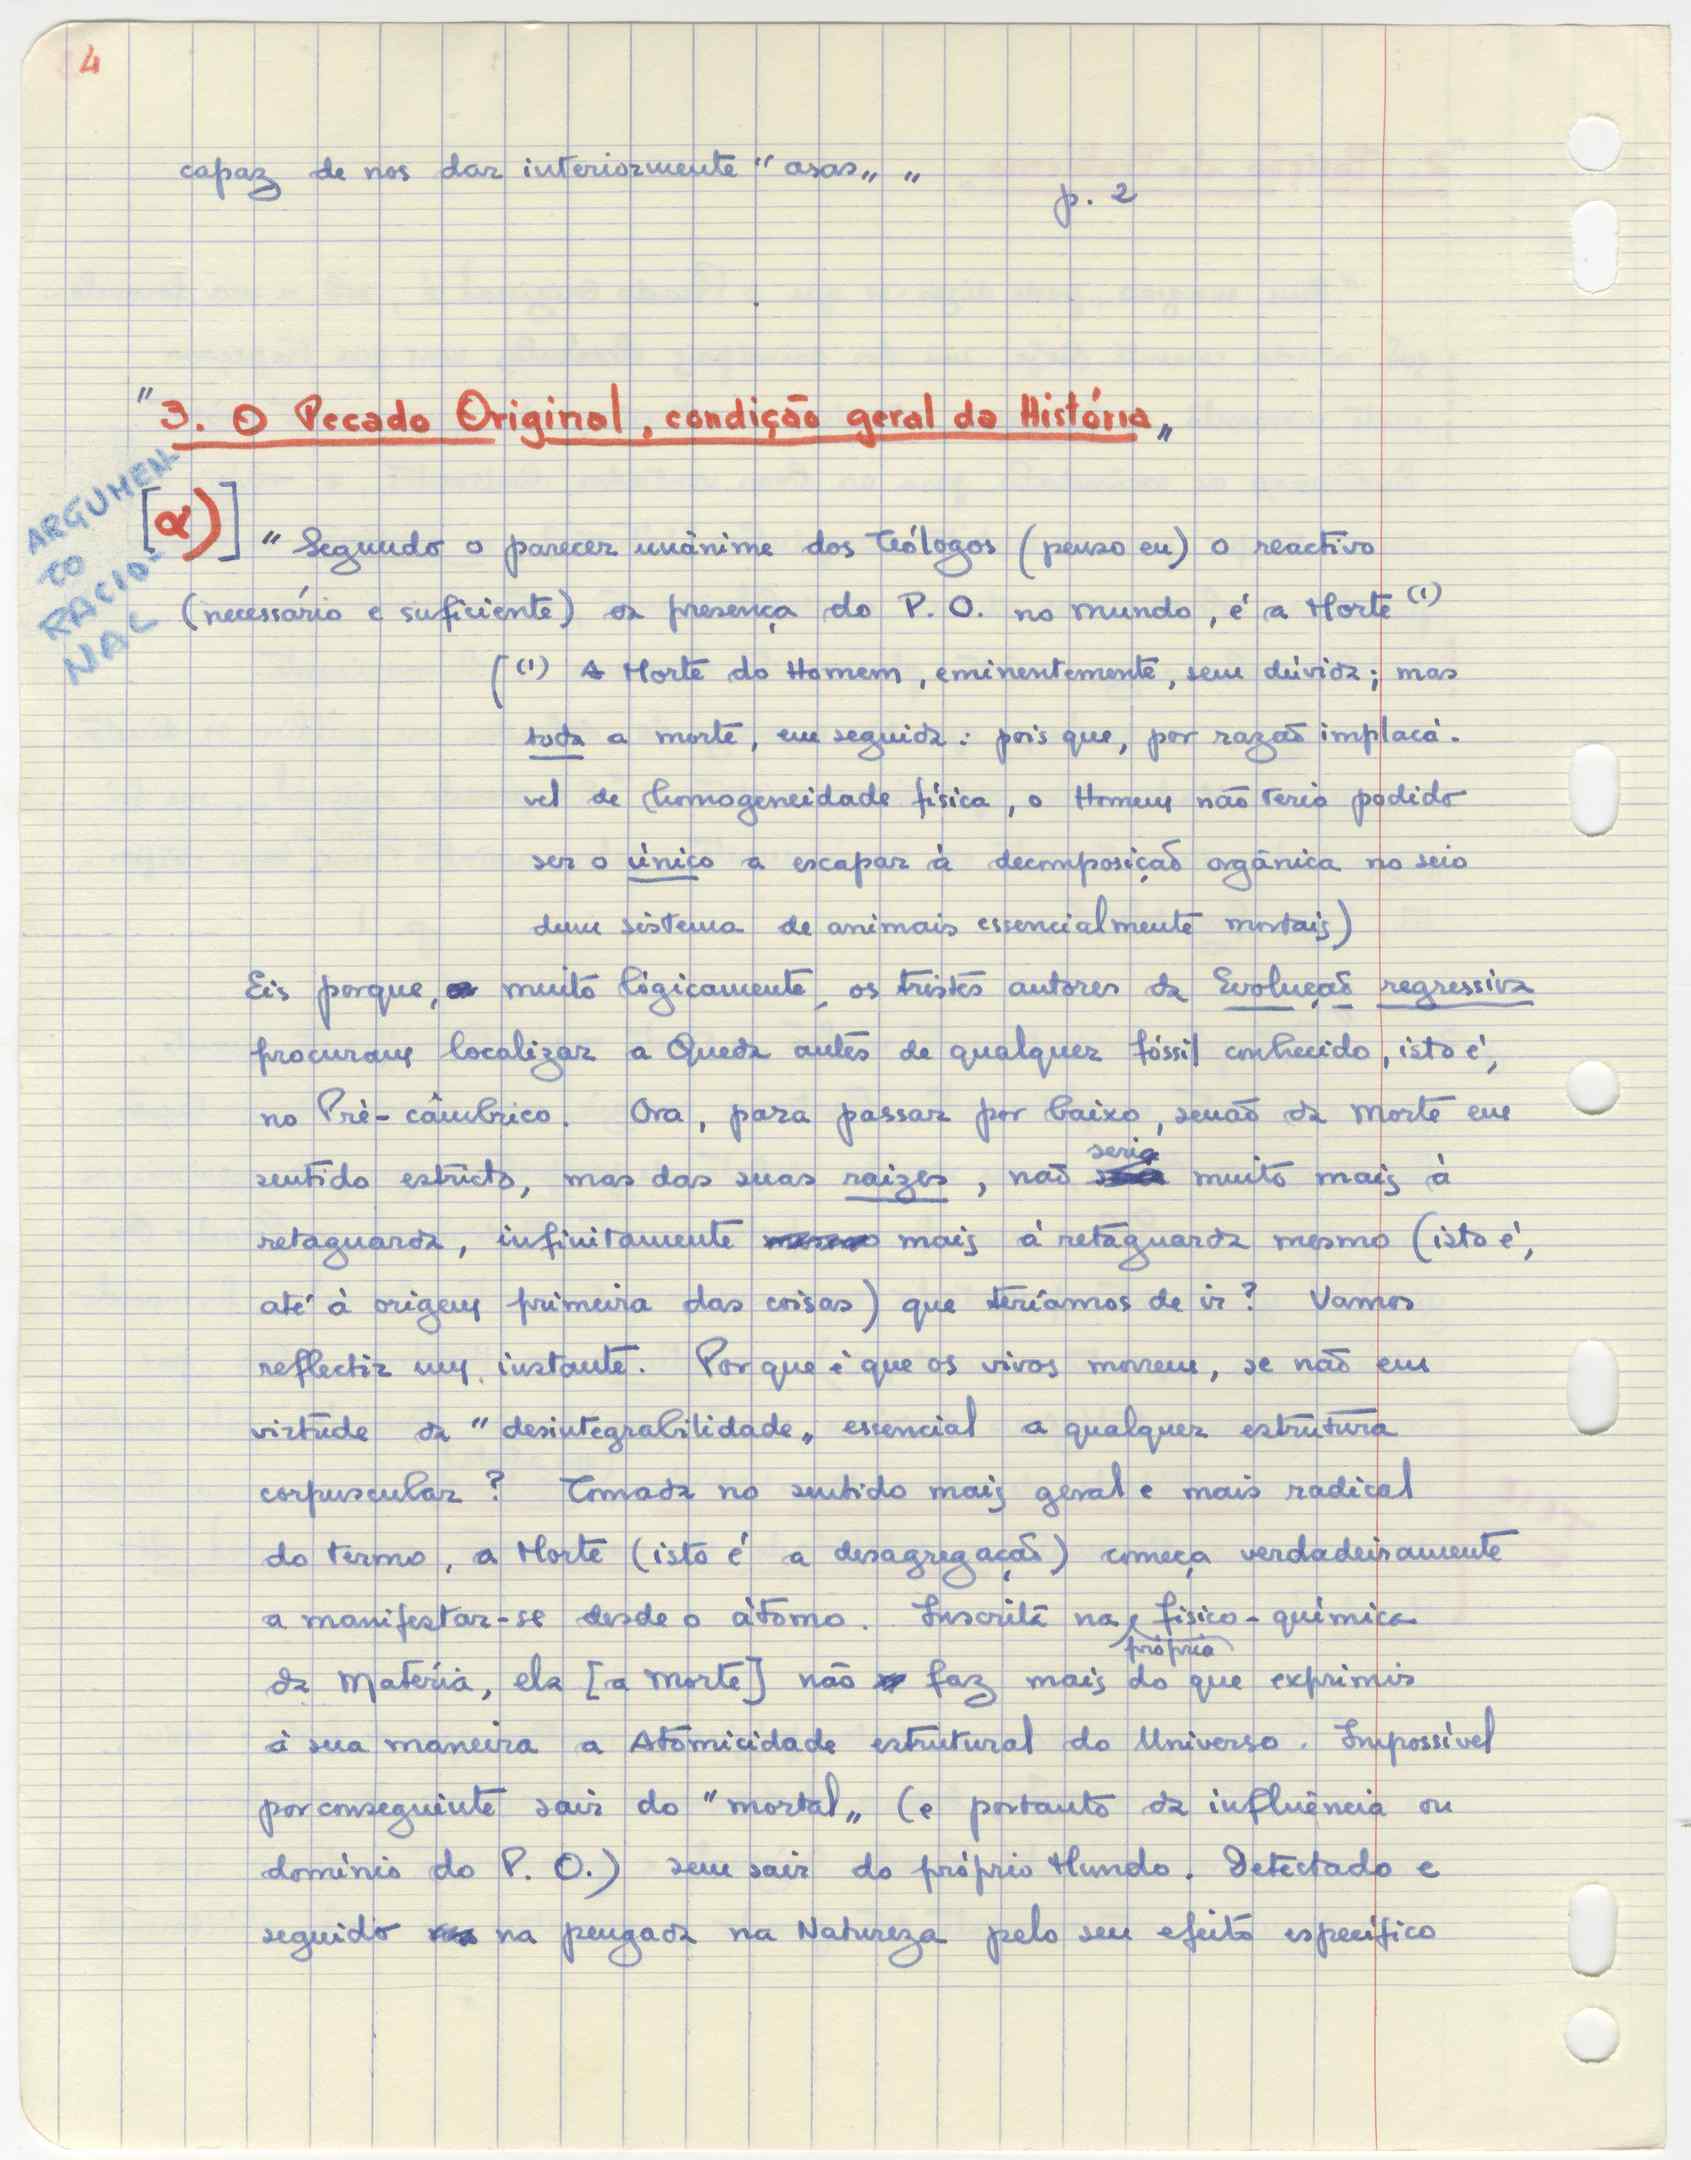 4
capaz de nos dar interiormente "asas„ „
p. 2
"3. O Pecado Original, condição geral da História„
ARGUMEN-
TO
RACIO-
NAL
[α)] "Segundo o parecer unânime dos Teólogos (penso eu) o reactivo
(necessário e suficiente) da presença do P. O. no mundo, é a Morte (1)
((1) A Morte do Homem, eminentemente, sem dúvida; mas
toda a morte, em seguida: pois que, por razão implacá-
vel de homogeneidade física, o Homem não teria podido
ser o único a escapar à decomposição orgânica no seio
dum sistema de animais essencialmente mortais)
Eis porque, muito lògicamente, os tristes autores da Evolução regressiva
procuram localizar a Queda antes de qualquer fóssil conhecido, isto é,
no Pré-câmbrico. Ora, para passar por baixo, senão da morte em
sentido estricto, mas das suas raizes, não seria muito mais à
retaguarda, infinitamente mais à retaguarda mesmo (isto é,
até à origem primeira das coisas) que teríamos de ir? Vamos
reflectir um instante. Por que é que os vivos morrem, se não em
virtude da "desintegrabilidade„ essencial a qualquer estrutura
corpuscular? Tomada no sentido mais geral e mais radical
do termo, a Morte (isto é a desagregação) começa verdadeiramente
a manifestar-se desde o átomo. Inscrita na própria físico-química
da Matéria, ela [a morte] não faz mais do que exprimir
à sua maneira a Atomicidade estrutural do Universo. Impossível
por conseguinte sair do "mortal„ (e portanto da influência ou
domínio do P. O.) sem sair do próprio Mundo. Detectado e
seguido na pengada na Natureza pelo seu efeito específico